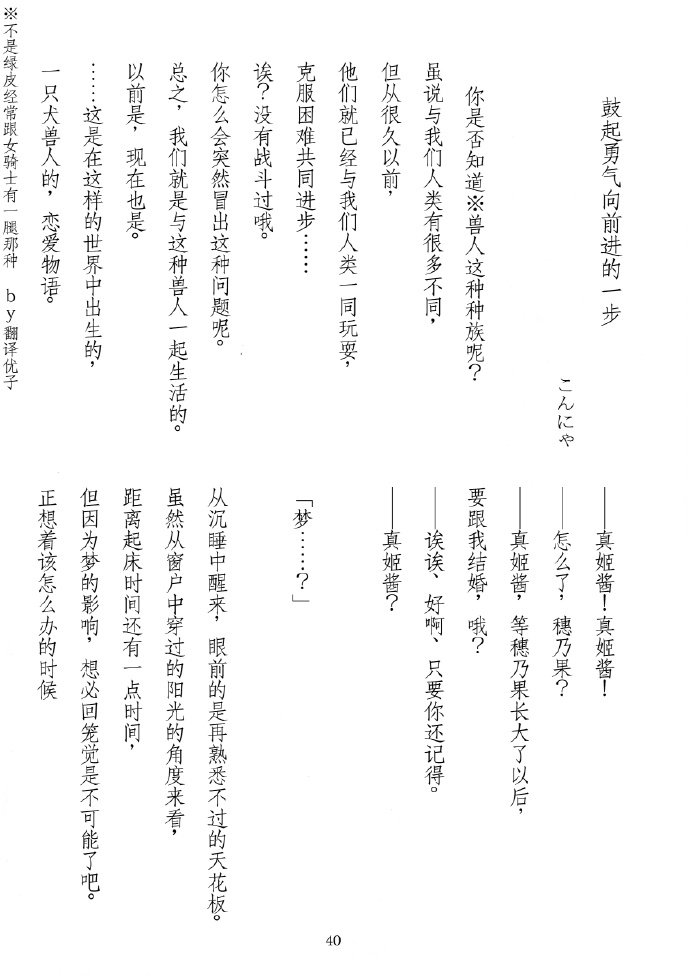 鼓起勇气向前进的一步
こんにゃ
你是否知道※兽人这种种族呢？
虽说与我们人类有很多不同，
但从很久以前，
他们就已经与我们人类一同玩耍，
克服困难共同进步……
诶？没有战斗过哦。
你怎么会突然冒出这种问题呢。
总之，我们就是与这种兽人一起生活的。
以前是，现在也是。
……这是在这样的世界中出生的，
一只犬兽人的，恋爱物语。
※不是绿皮经常跟女骑士有一腿那种　by翻译优子
——真姬酱！真姬酱！
——怎么了，穗乃果？
——真姬酱，等穗乃果长大了以后，
要跟我结婚，哦？
——诶诶、好啊、只要你还记得。
——真姬酱？
「梦……？」
从沉睡中醒来，眼前的是再熟悉不过的天花板。
虽然从窗户中穿过的阳光的角度来看，
距离起床时间还有一点时间，
但因为梦的影响，想必回笼觉是不可能了吧。
正想着该怎么办的时候
40